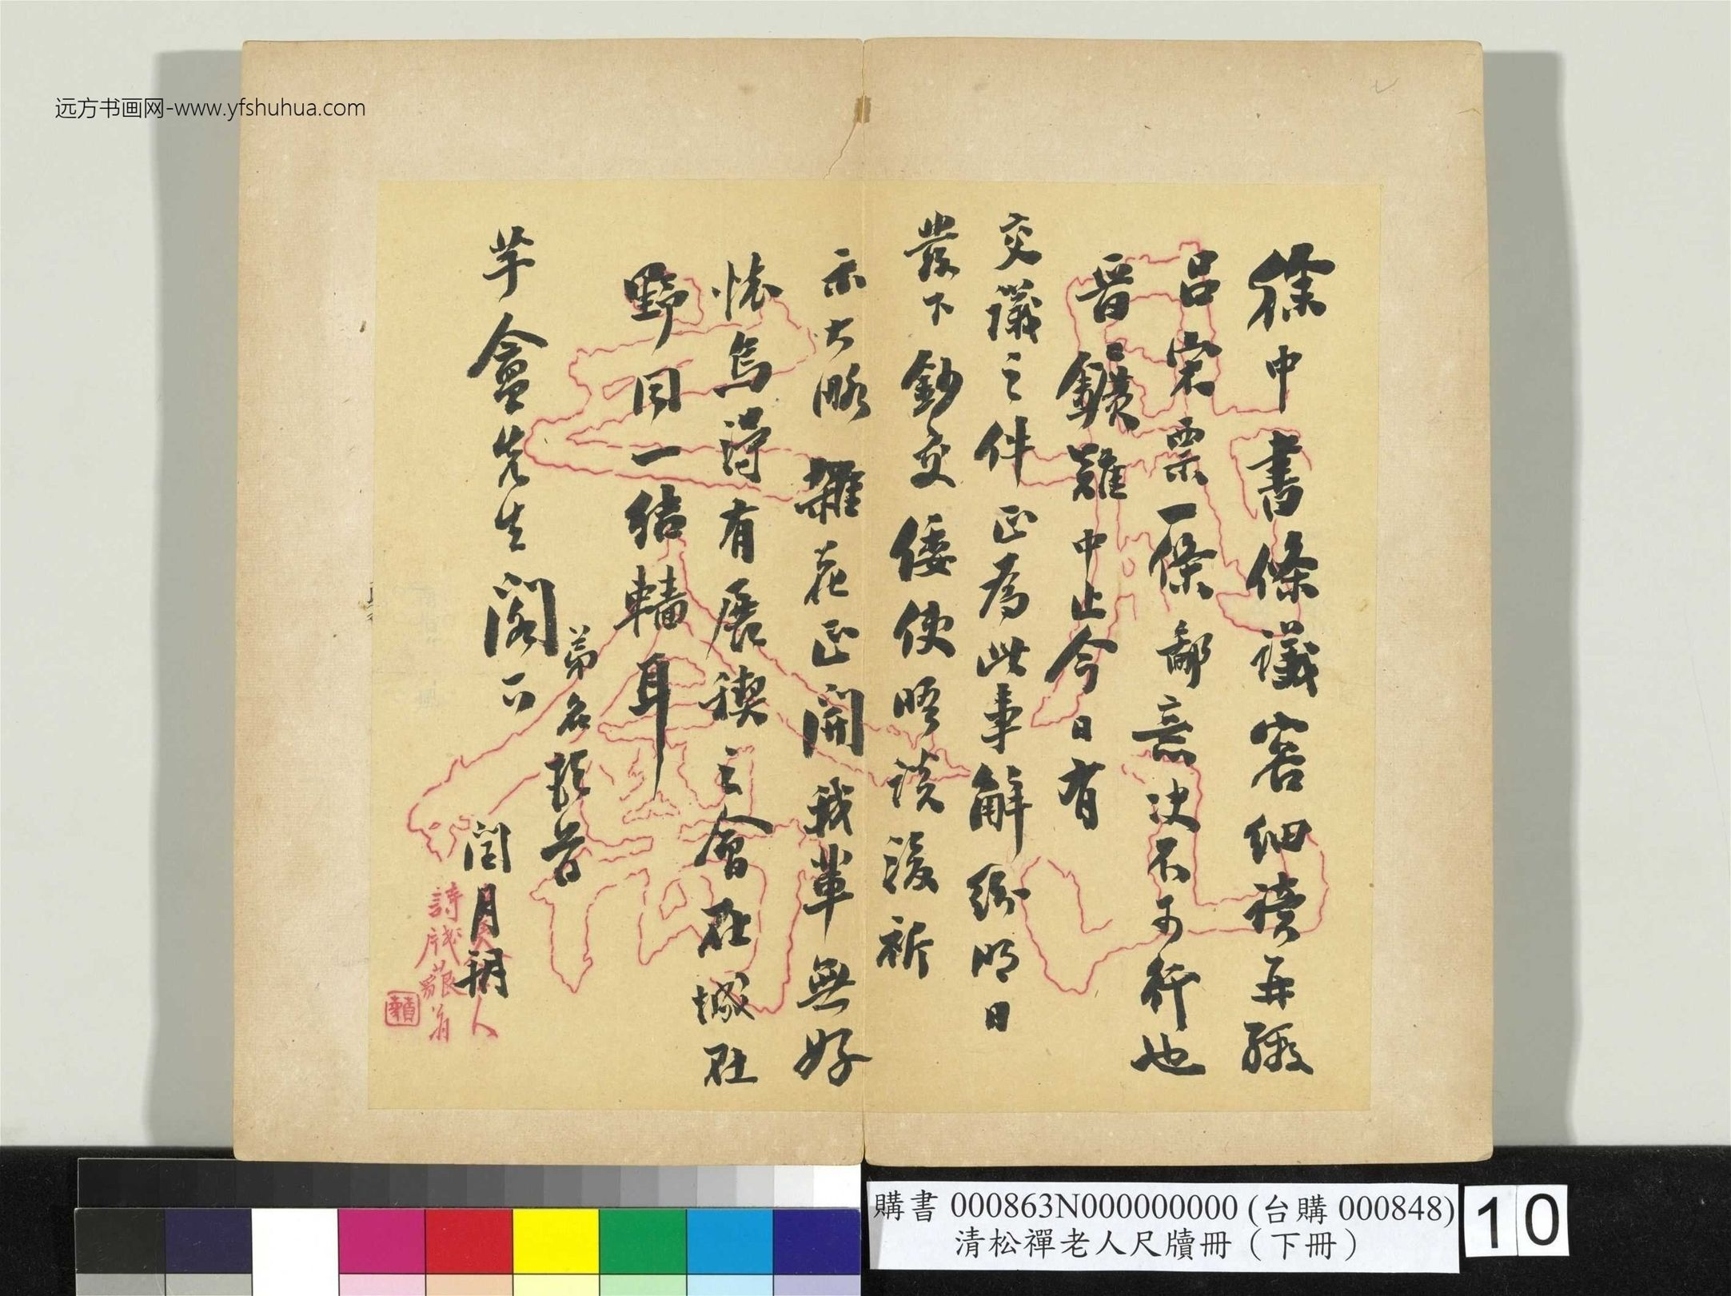 远方书画网-www.yfshuhua.com
徐中書條議容細讀再繳
呂宋票一條鄙意決不可行也
晉鑛難中止今日有
交議之件正爲此事解紛明日
發下鈔交倭使晤談後祈
示大略雜花正開我輩無好
懷烏得有展禊之會在城在
野同一結轖耳
芋盦先生閣下
弟名頓首
閏月朔
詩
翁
購書 000863N000000000 (台購 000848)
清松禪老人尺牘冊（下冊）
10